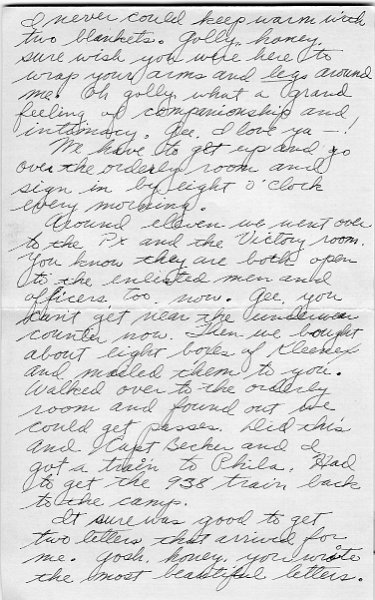 I never could keep warm with
two blankets. Golly, honey,
sure wish you were here to
wrap your arms and legs around
me. Oh golly, what a grand
feeling of companionship and
intimacy. Gee, I love ya —!
We have to get up and go
over the orderly room and
sign in by eight o'clock
every morning.
Around eleven we went over
to the Px and the Victory room.
You know they are both open
to the enlisted men and
officers, too, now. Gee, you
can't get near the underwear
counter now. Then we bought
about eight boxes of Kleenex
and mailed them to you.
Walked over to the orderly
room and found out we
could get passes. Did this
and Capt Becker and I
got a train to Phila. Had
to get the 938 train back
to the camp.
It sure was good to get
two letters that arrived for
me. Gosh, honey, you write
the most beautiful letters.